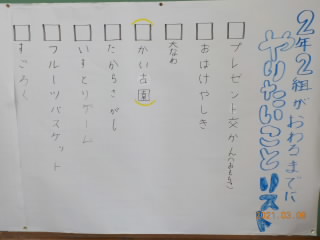 2年2組がおわるまでに
やりたいことリスト
プレゼント交かん(へんしょう)
おばけやしき
大なわ
かい古園
たからさがし
いすとりゲーム
フルーツバスケット
すごろく
2021.03.08